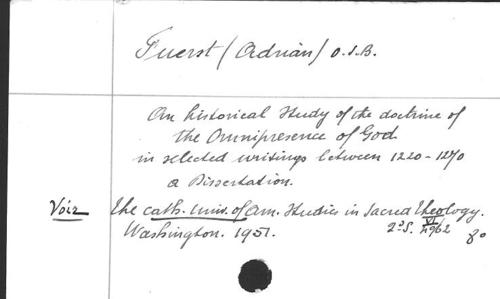 Fuerst (Adrian) O.S.B.
An historical Study of the doctrine of
the Omnipresence of God
in selected writings between 1220-1270
a Dissertation.
Voir The Cath. Univ. of Am. Studies in Sacred Theology.
Washington. 1951. 2ᵈS. 8°